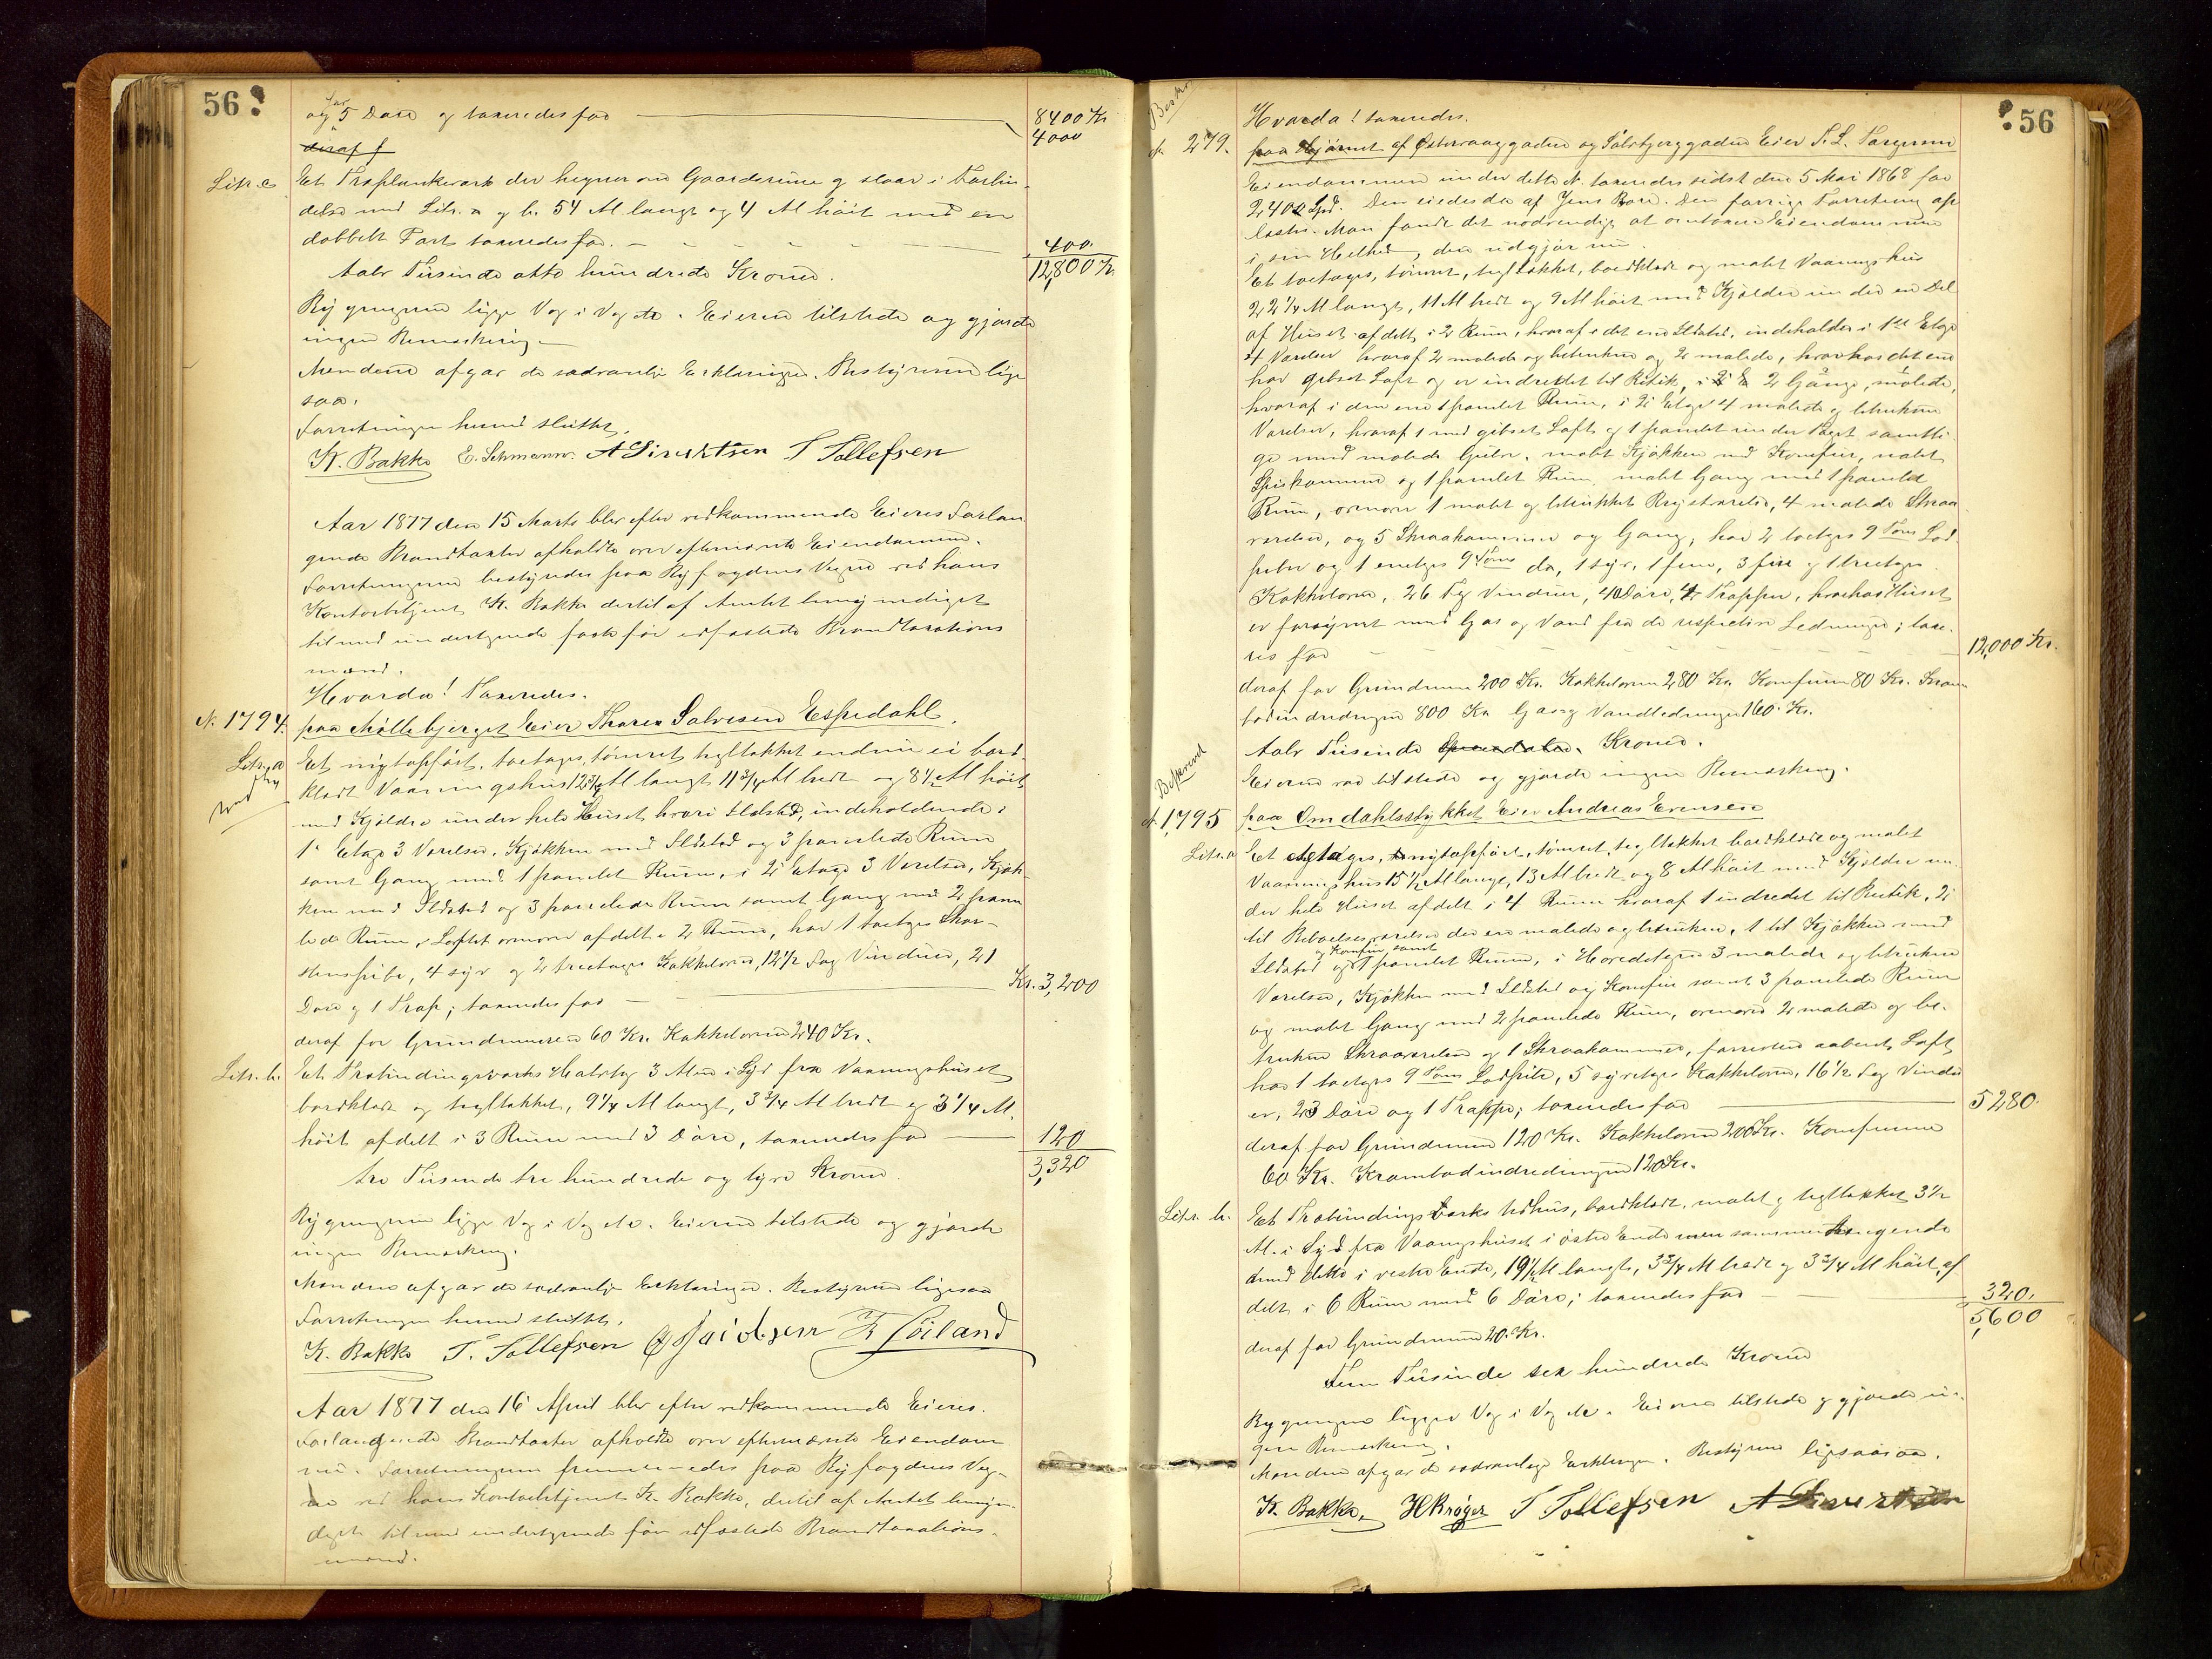 56
og 5 Døre og taxeredes for 8400 Kr
4000
deraf f
Litr. c Et Træplankeværk der hegner om Gaardsrum og staar i Forbin-
delse med Litr. a og b. 54 Al langt og 4 Al høit med en
dobbelt Port taxeredes for. 400.
12,800 Kr.
tolv Tusinde otte hundrede Kroner.
Bygningerne ligge Væg i Væg etc. Eieren tilstede og gjorde
ingen Bemærkning
Mændene afgav de sædvanlige Erklæringer. Bestyreren lige
saa.
Forretningen hermed sluttet.
K. Bakke E. Sehmann. A Sivertsen T Tollefsen
Aar 1877 den 15 Marts blev efter vedkommende Eieres Forlan
gende Brandtaxter afholdte over efternævnte Eiendomme.
Forretningerne bestyredes paa Byfogdens Vegne ved hans
Kontorbetjent K. Bakke dertil af Amtet bemyndiget
tilmed undertegnede faste før edfæstede Brandtaxations
mænd.
Hvorda! Taxeredes.
N. 1794. paa Møllebjerget Eier Thores Salvesen Espedahl.
Litr. a Et nyopført, toetages, tømret tegltækket endnu ei bord-
klædt Vaaningshus 12 3/4 Al langt 11 3/4 Al bredt og 8 1/2 Al høit
med Kjælder under hele Huset hvori Ildsted, indeholdende i
1e Etage 3 Værelser, Kjøkken med Ildsted og 3 panelede Rum
samt Gang med 1 panelet Rum, i 2e Etage 3 Værelser, Kjøk-
ken med Ildsted og 3 panelede Rum samt Gang med 2 pane
lede Rum, Loftet ovenover afdelt i 2 Rum, har 1 toetages Skor-
stenspibe, 4 syv og 2 treetages Kakkelovne, 12 1/2 Fag Vinduer, 21
Døre og 1 Trap; taxeredes for Kr. 3,200
deraf for Grundmuren 60 Kr. Kakkelovne 240 Kr.
Litr. b. Et Træbindingsværks Halvtag 3 Alen i Syd fra Vaaningshuset
bordklædt og tegltækket, 9 1/4 Al langt, 3 3/4 Al bredt og 3 1/4 Al.
høit afdelt i 3 Rum med 3 Døre, taxeredes for 120
3,320
tre Tusinde tre hundrede og tyve Kroner.
Bygningerne ligge Væg i Væg etc. Eieren tilstede og gjorde
ingen Bemærkning.
Mændene afgav de sædvanlige Erklæringer. Bestyreren ligesaa
Forretningen hermed sluttet.
K. Bakke T. Tollefsen
Aar 1877 den 16 April blev efter vedkommende Eieres
Forlangende Brandtaxter afholdte over efternævnte Eiendom
me. Forretningerne paa Byfogdens Veg-
ne ved hans Kontorbetjent K. Bakke, dertil af Amtet bemyn-
diget tilmed undertegnede før edfæstede Brandtaxations-
mænd.
56
Hvorda! taxeredes.
N. 279. paa Hjørnet af Østervaaggaden og Sølvbjerggaden Eier T. L. Torgersen
Eiendommen under dette N. taxeredes sidst den 5 Mai 1868 for
2402 Spd. Den eiedes da af Jens Bore. Den forrige Forretning op
læstes. Man fandt det nødvendigt at omtaxere Eiendommen
i sin Helhed, den udgjør nu.
Et toetages, tømret, tegltækket, bordklædt og malet Vaaningshus
22 1/4 Al langt, 11 Al bredt og 9 Al høit med Kjælder under en Del
af Huset afdelt i 2 Rum, hvoraf i det ene Ildsted, indeholder i 1ste Etage
4 Værelser hvoraf 2 malede og betrukne og 2 malede, hvorhos det ene
har gibset Loft og er indredet til Butik, 2 Gange, malede,
hvoraf i den ene 1 panelet Rum, i 2e Etage 4 malede og betrukne
Værelser, hvoraf 1 med gibset Loft og 1 panelet under Taget samtli-
ge med malede Gulve, malet Kjøkken med Komfur, malet
Spiskammer og 1 panelet Rum malet Gang med 1 panelet
Rum, ovenover 1 malet og betrukket Kvistværelse, 4 malede Skraa
værelser, og 5 Skraakammere og Gang, har 2 toetages 9 Toms Lod-
piber og 1 enetages 9 Toms do, 1 syv, 1 fem, 3 fire og 1 treetages
Kakkelovne, 26 Fag Vinduer, 40 Døre, 4 Trapper, hvorhos Huset
er forsynet med Gas og Vand fra de respective Ledninger; taxe-
res for 12,000 Kr.
deraf for Grundmuren 200 Kr. Kakkelovne 280 Kr. Komfuren 80 Kr. Kram
bodindredningen 800 Kr Gas og Vandledningen 160 Kr.
tolv Tusinde Kroner.
Eieren var tilstede og gjorde ingen Bemærkning.
Beskrevet
N. 1,795 paa Omdahlsstykket Eier Andreas Evensen
Litr. a Et etages, nyopført, tømret, tegltækket bordklædt og malet
Vaaningshus 15 1/2 Al langt, 13 Al bredt og 8 Al høit med Kjælder un-
der hele Huset afdelt i 4 Rum hvoraf 1 indredet til Butik, 2
til Beboelsesværelser der ere malede og betrukne, 1 til Kjøkken med
Ildsted og Komfur samt 1 panelet Rum, i Hovedetagen 3 malede og betrukne
Værelser, Kjøkken med Ildsted og Komfur samt 3 panelede Rum
og malet Gang med 2 panelede Rum, ovenover 2 malede og be-
trukne Skraaværelser og 1 Skraakammer, forresten aabent Loft
har 1 toetages 9 Toms Lodpibe, 5 syvetages Kakkelovne, 16 1/2 Fag Vindu
er, 23 Døre og 1 Trappe; taxeredes for 5280.
deraf for Grundmuren 120 Kr. Kakkelovne 200 Kr. Komfurene
60 Kr. Krambodindredningen 120 Kr.
Litr. b. Et Træbindings Værks Udhus, bordklædt, malet og tegltækket 3 1/2
Al. i Syd fra Vaaningshuset i østre Ende men sammenhængende
med dette i vestre Ende, 19 1/2 Al langt, 3 3/4 Al bredt og 3 3/4 Al høit af
delt i 6 Rum med 6 Døre; taxeredes for 320.
5,600
deraf for Grundmuren 20 Kr.
Fem Tusinde sex hundrede Kroner
Bygningerne ligger Væg i Væg etc. Eieren tilstede og gjorde in-
gen Bemærkning.
Mændene afgav de sædvanlige Erklæringer. Bestyreren ligesaa.
K. Bakke. H Krøger T Tollefsen A Sivertsen